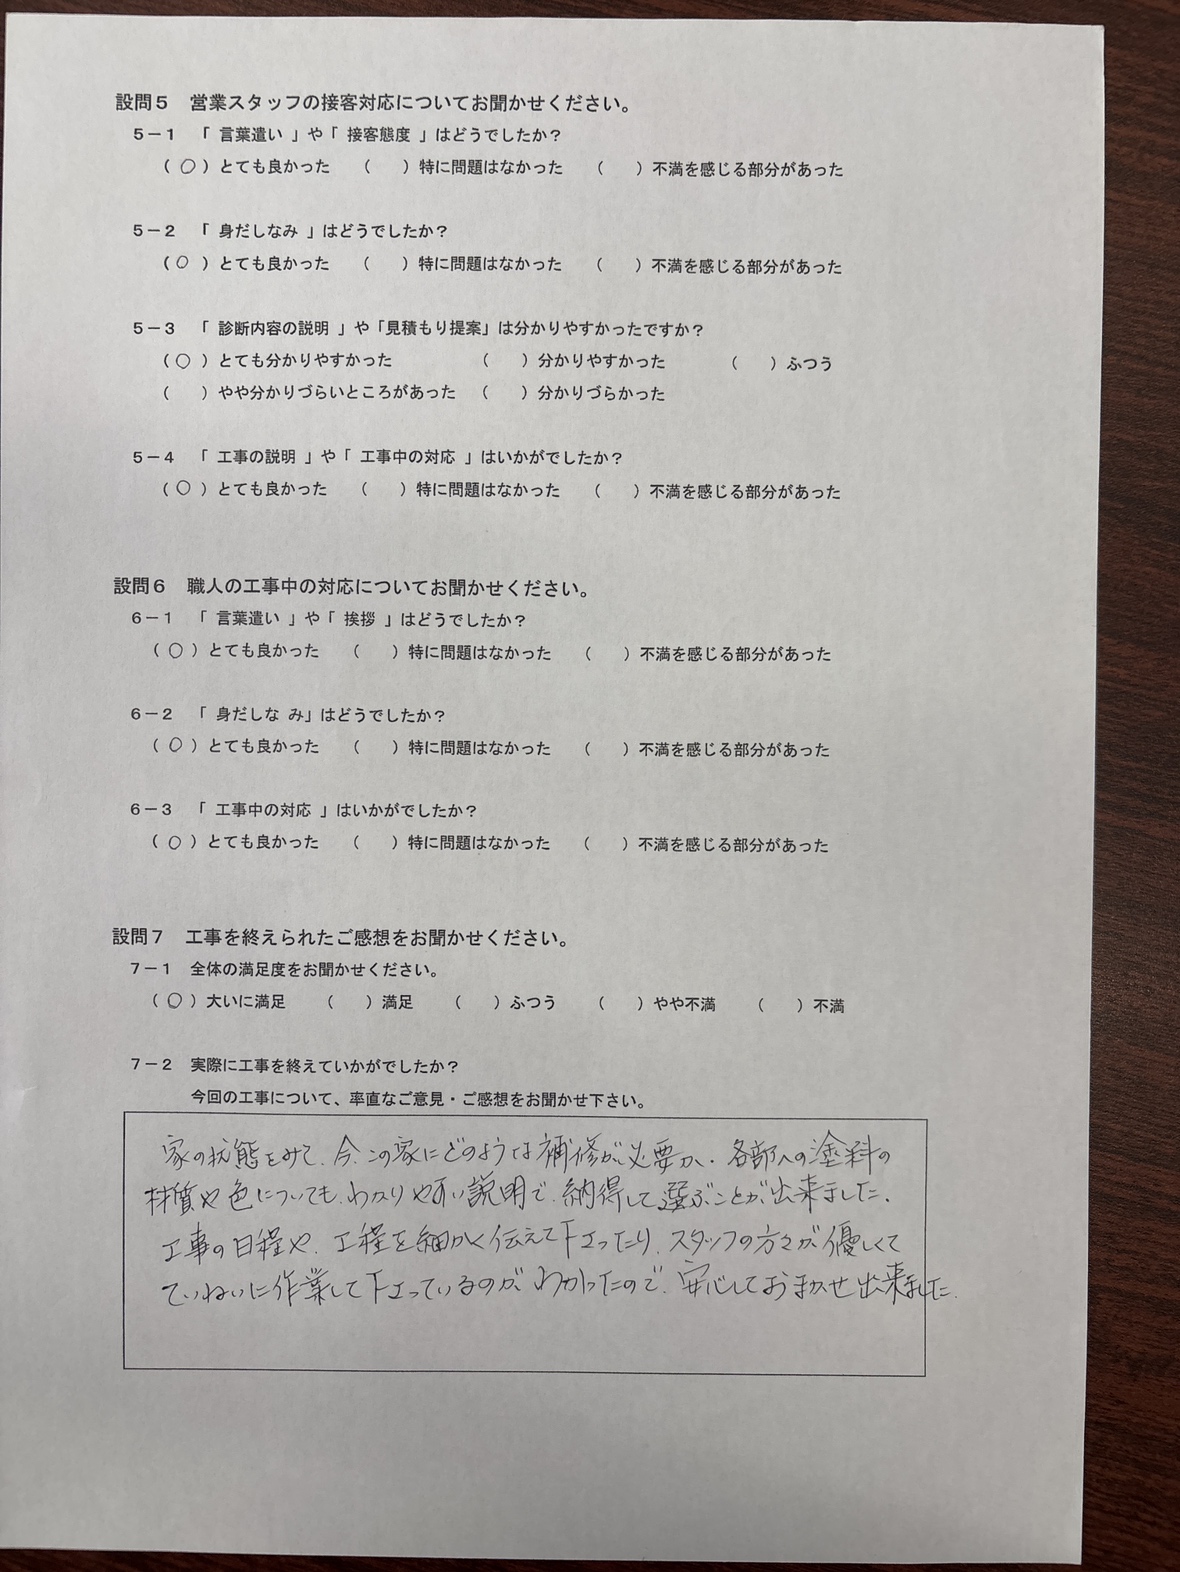 設問５　営業スタッフの接客対応についてお聞かせください。
５－１　「 言葉遣い 」や「 接客態度 」はどうでしたか？
（ ○ ）とても良かった　（　　）特に問題はなかった　（　　）不満を感じる部分があった
５－２　「 身だしなみ 」はどうでしたか？
（ ○ ）とても良かった　（　　）特に問題はなかった　（　　）不満を感じる部分があった
５－３　「 診断内容の説明 」や「見積もり提案」は分かりやすかったですか？
（ ○ ）とても分かりやすかった　（　　）分かりやすかった　（　　）ふつう
（　　）やや分かりづらいところがあった　（　　）分かりづらかった
５－４　「 工事の説明 」や「 工事中の対応 」はいかがでしたか？
（ ○ ）とても良かった　（　　）特に問題はなかった　（　　）不満を感じる部分があった
設問６　職人の工事中の対応についてお聞かせください。
６－１　「 言葉遣い 」や「 挨拶 」はどうでしたか？
（ ○ ）とても良かった　（　　）特に問題はなかった　（　　）不満を感じる部分があった
６－２　「 身だしな み」はどうでしたか？
（ ○ ）とても良かった　（　　）特に問題はなかった　（　　）不満を感じる部分があった
６－３　「 工事中の対応 」はいかがでしたか？
（ ○ ）とても良かった　（　　）特に問題はなかった　（　　）不満を感じる部分があった
設問７　工事を終えられたご感想をお聞かせください。
７－１　全体の満足度をお聞かせください。
（ ○ ）大いに満足　（　　）満足　（　　）ふつう　（　　）やや不満　（　　）不満
７－２　実際に工事を終えていかがでしたか？
今回の工事について、率直なご意見・ご感想をお聞かせ下さい。
家の状態をみて、今、この家にどのような補修が必要か、各部への塗料の
材質や色についても、わかりやすい説明で、納得して選ぶことが出来ました。
工事の日程や、工程を細かく伝えて下さったり、スタッフの方々が優しくて
ていねいに作業して下さっているのがわかったので、安心しておまかせ出来ました。